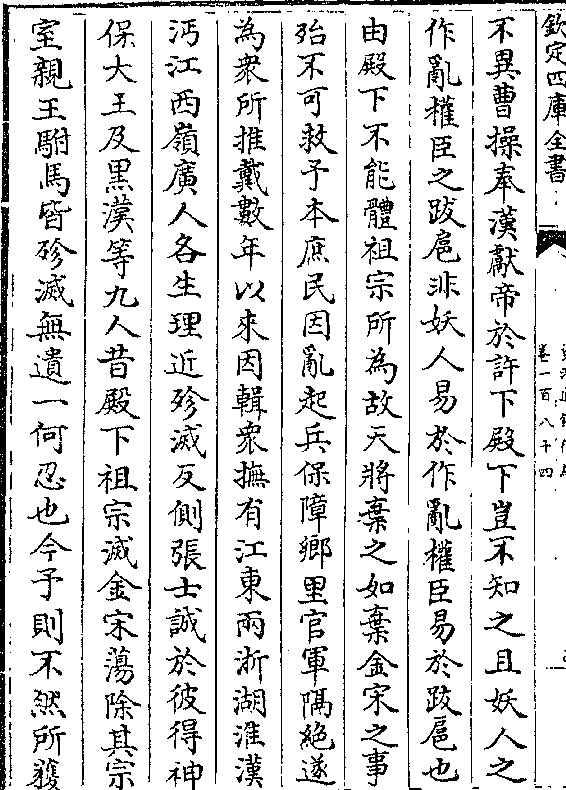 欽定四庫全書
卷一百八十四
不異曹操奉漢獻帝於許下殿下豈不知之且妖人之
作亂權臣之跋扈非妖人易於作亂權臣易於跋扈也
由殿下不能體祖宗所為故天將棄之如棄金宋之事
殆不可救予本庶民因亂起兵保障鄉里官軍隔絶遂
為衆所推戴數年以來因輯衆撫有江東兩浙湖淮漢
沔江西嶺廣人各生理近殄滅反側張士誠於彼得神
保大王及黒漢等九人昔殿下祖宗滅金宋蕩除其宗
室親王駙馬皆殄滅無遺一何忍也今予則不然所獲